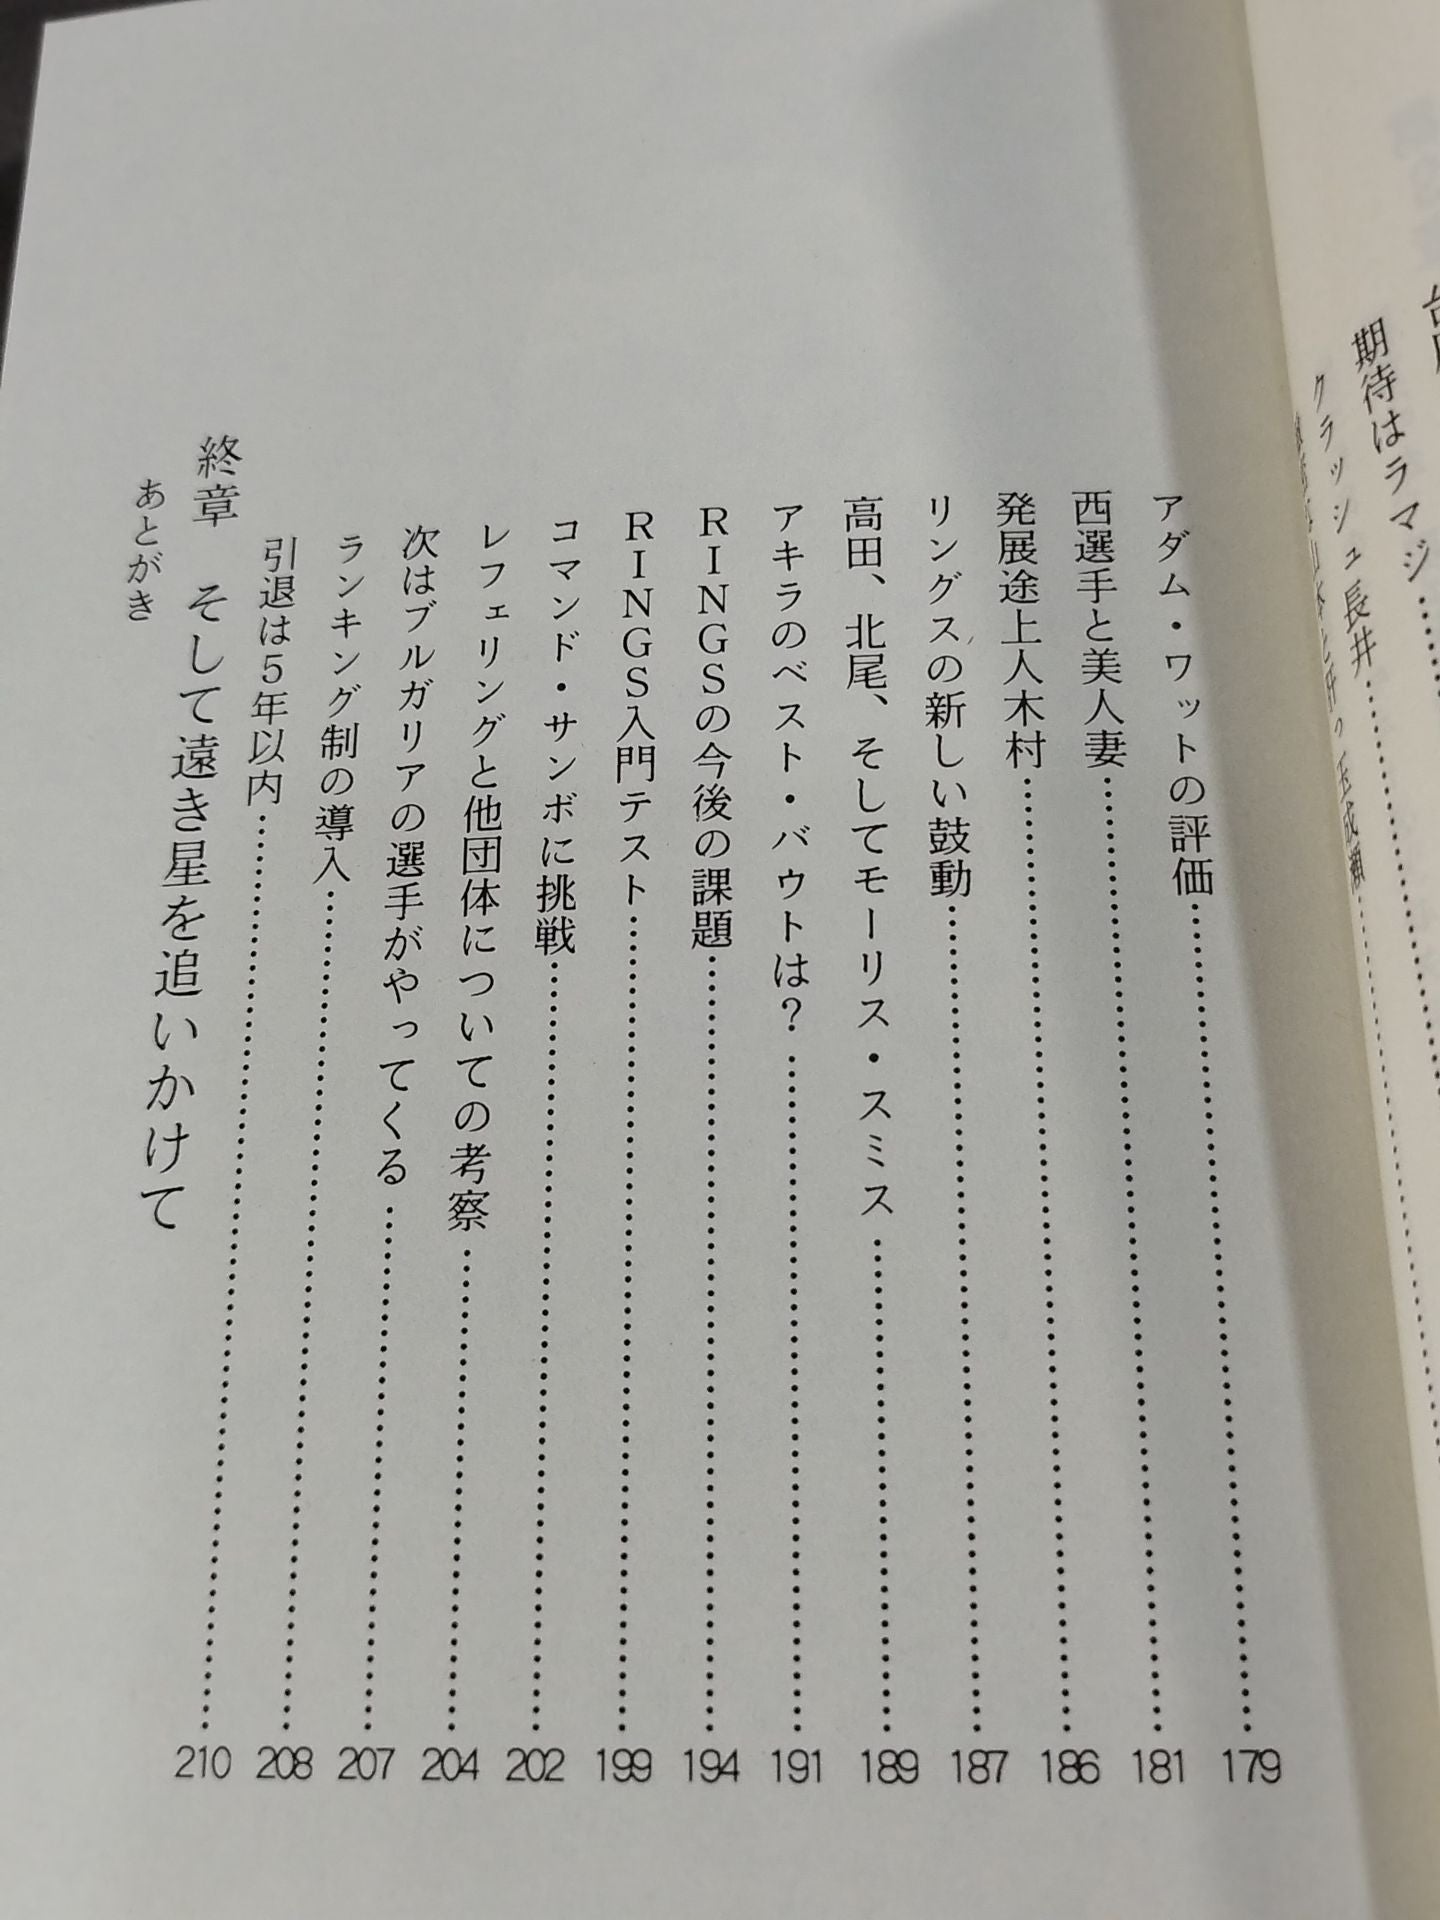 期待はラマジ
クラッシュ長井
アダム・ワットの評価 179
西選手と美人妻 181
発展途上人木村 186
リングスの新しい鼓動 187
高田、北尾、そしてモーリス・スミス 189
アキラのベスト・バウトは？ 191
ＲＩＮＧＳの今後の課題 194
ＲＩＮＧＳ入門テスト 199
コマンド・サンボに挑戦 202
レフェリングと他団体についての考察 204
次はブルガリアの選手がやってくる 207
ランキング制の導入 208
引退は５年以内 210
終章　そして遠き星を追いかけて
あとがき